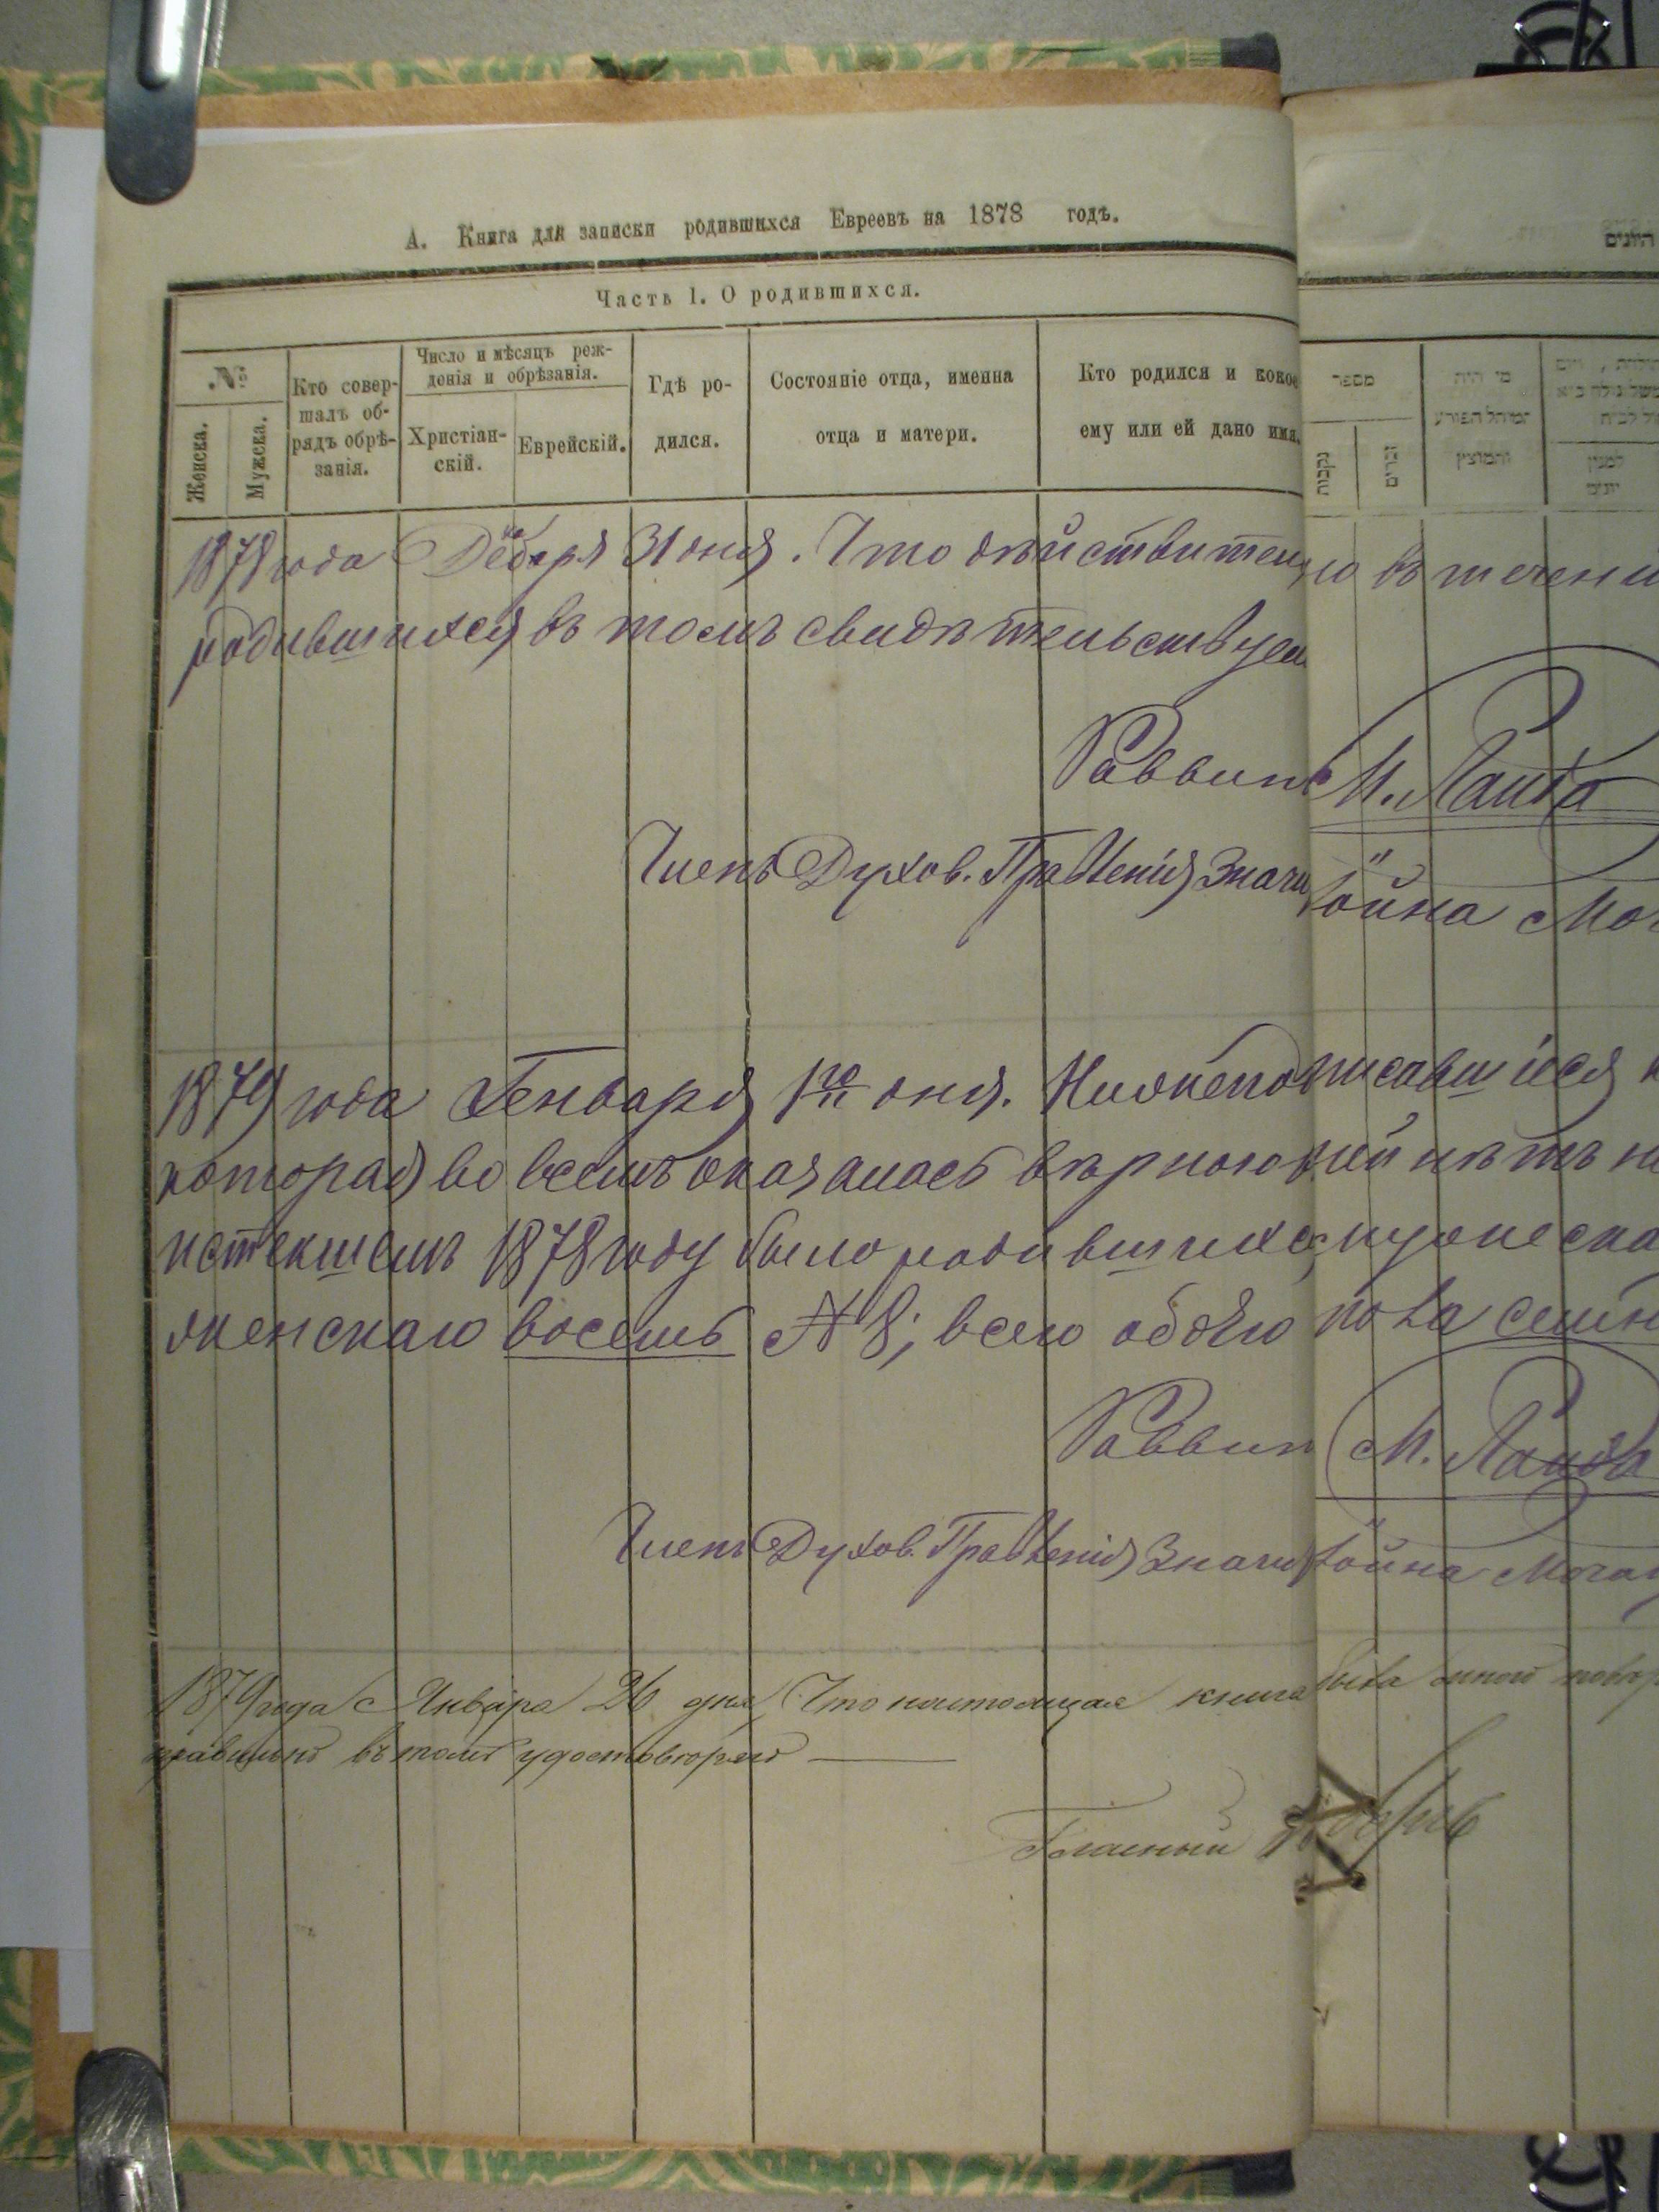 А. Книга для записки родившихся Евреевъ на 1878 годъ.
Часть 1. О родившихся.
№
Женска.
Мужска.
Кто совер-
шалъ об-
рядъ обрѣ-
занія.
Число и мѣсяцъ рож-
денія и обрѣзанія.
Христіан-
скій.
Еврейскій.
Гдѣ ро-
дился.
Состояніе отца, имена
отца и матери.
Кто родился и кокое
ему или ей дано имя.
מספר
נקבות
זכרים
מי היה
והמוצץ
למנין
יונים
היונים
1878 года Декабря 31 дня. Что дѣйствительно въ течени
родившихся въ томъ свидѣтельствуем
Раввинъ М. Ланда
Членъ Духов. Правленія
1879 года Генваря 1го дня. Нижеподписавшіеся
которая во всемъ оказалась вѣрною
истекшемъ 1878 году было родившихся мужеска
женскаго восемь № 8; всего обоего пола семн
Раввин М. Ланда
Членъ Духов. Правленія
1879 года Января 26 дня, Что настоящая книга была мною повѣр
правильно въ томъ удостовѣряю
Гласный